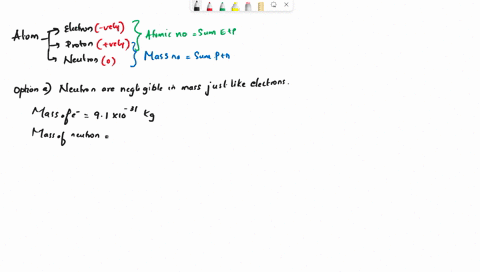 Electron (-vely)
Atom Proton (+vely)
Neutron (0)
Atomic no = Sum E+P
Mass no = Sum P+n
Option a) Neutron are negligible in mass just like electrons.
Mass of e⁻ = 9.1 x10⁻³¹ kg
Mass of neutron =